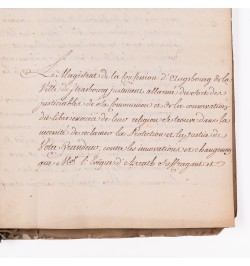 Le Magistrat de la Confession d'Augsbourg de la
Ville de Strasbourg justement allarmé du sort des
justiciables de sa Communion et de la conservation
du libre exercice de leur religion se trouve dans la
necessité de reclamer la Protection et la justice de
Votre Grandeur, contre les innovations et changemens
que Mgr. l'Evêque d'Arath Suffragant et